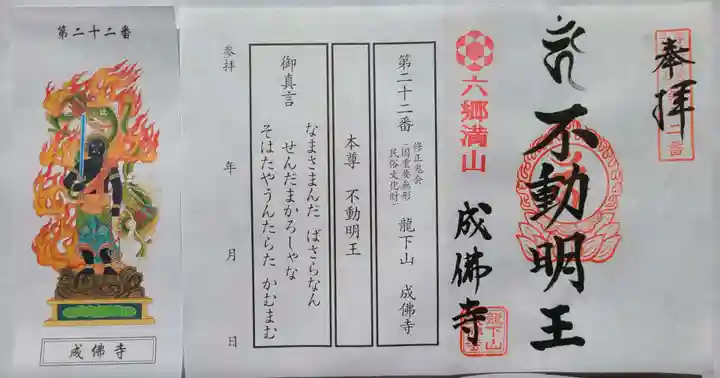 奉拝
不動明王
六郷満山
成佛寺
龍下山
第二十二番
修正鬼会
(国重要無形
民俗文化財)
龍下山 成佛寺
本尊 不動明王
御真言
なまさまんだ ばさらなん
せんだまかろしゃな
そはたやうんたらた かむまむ
参拝 年 月 日
第二十二番
成佛寺